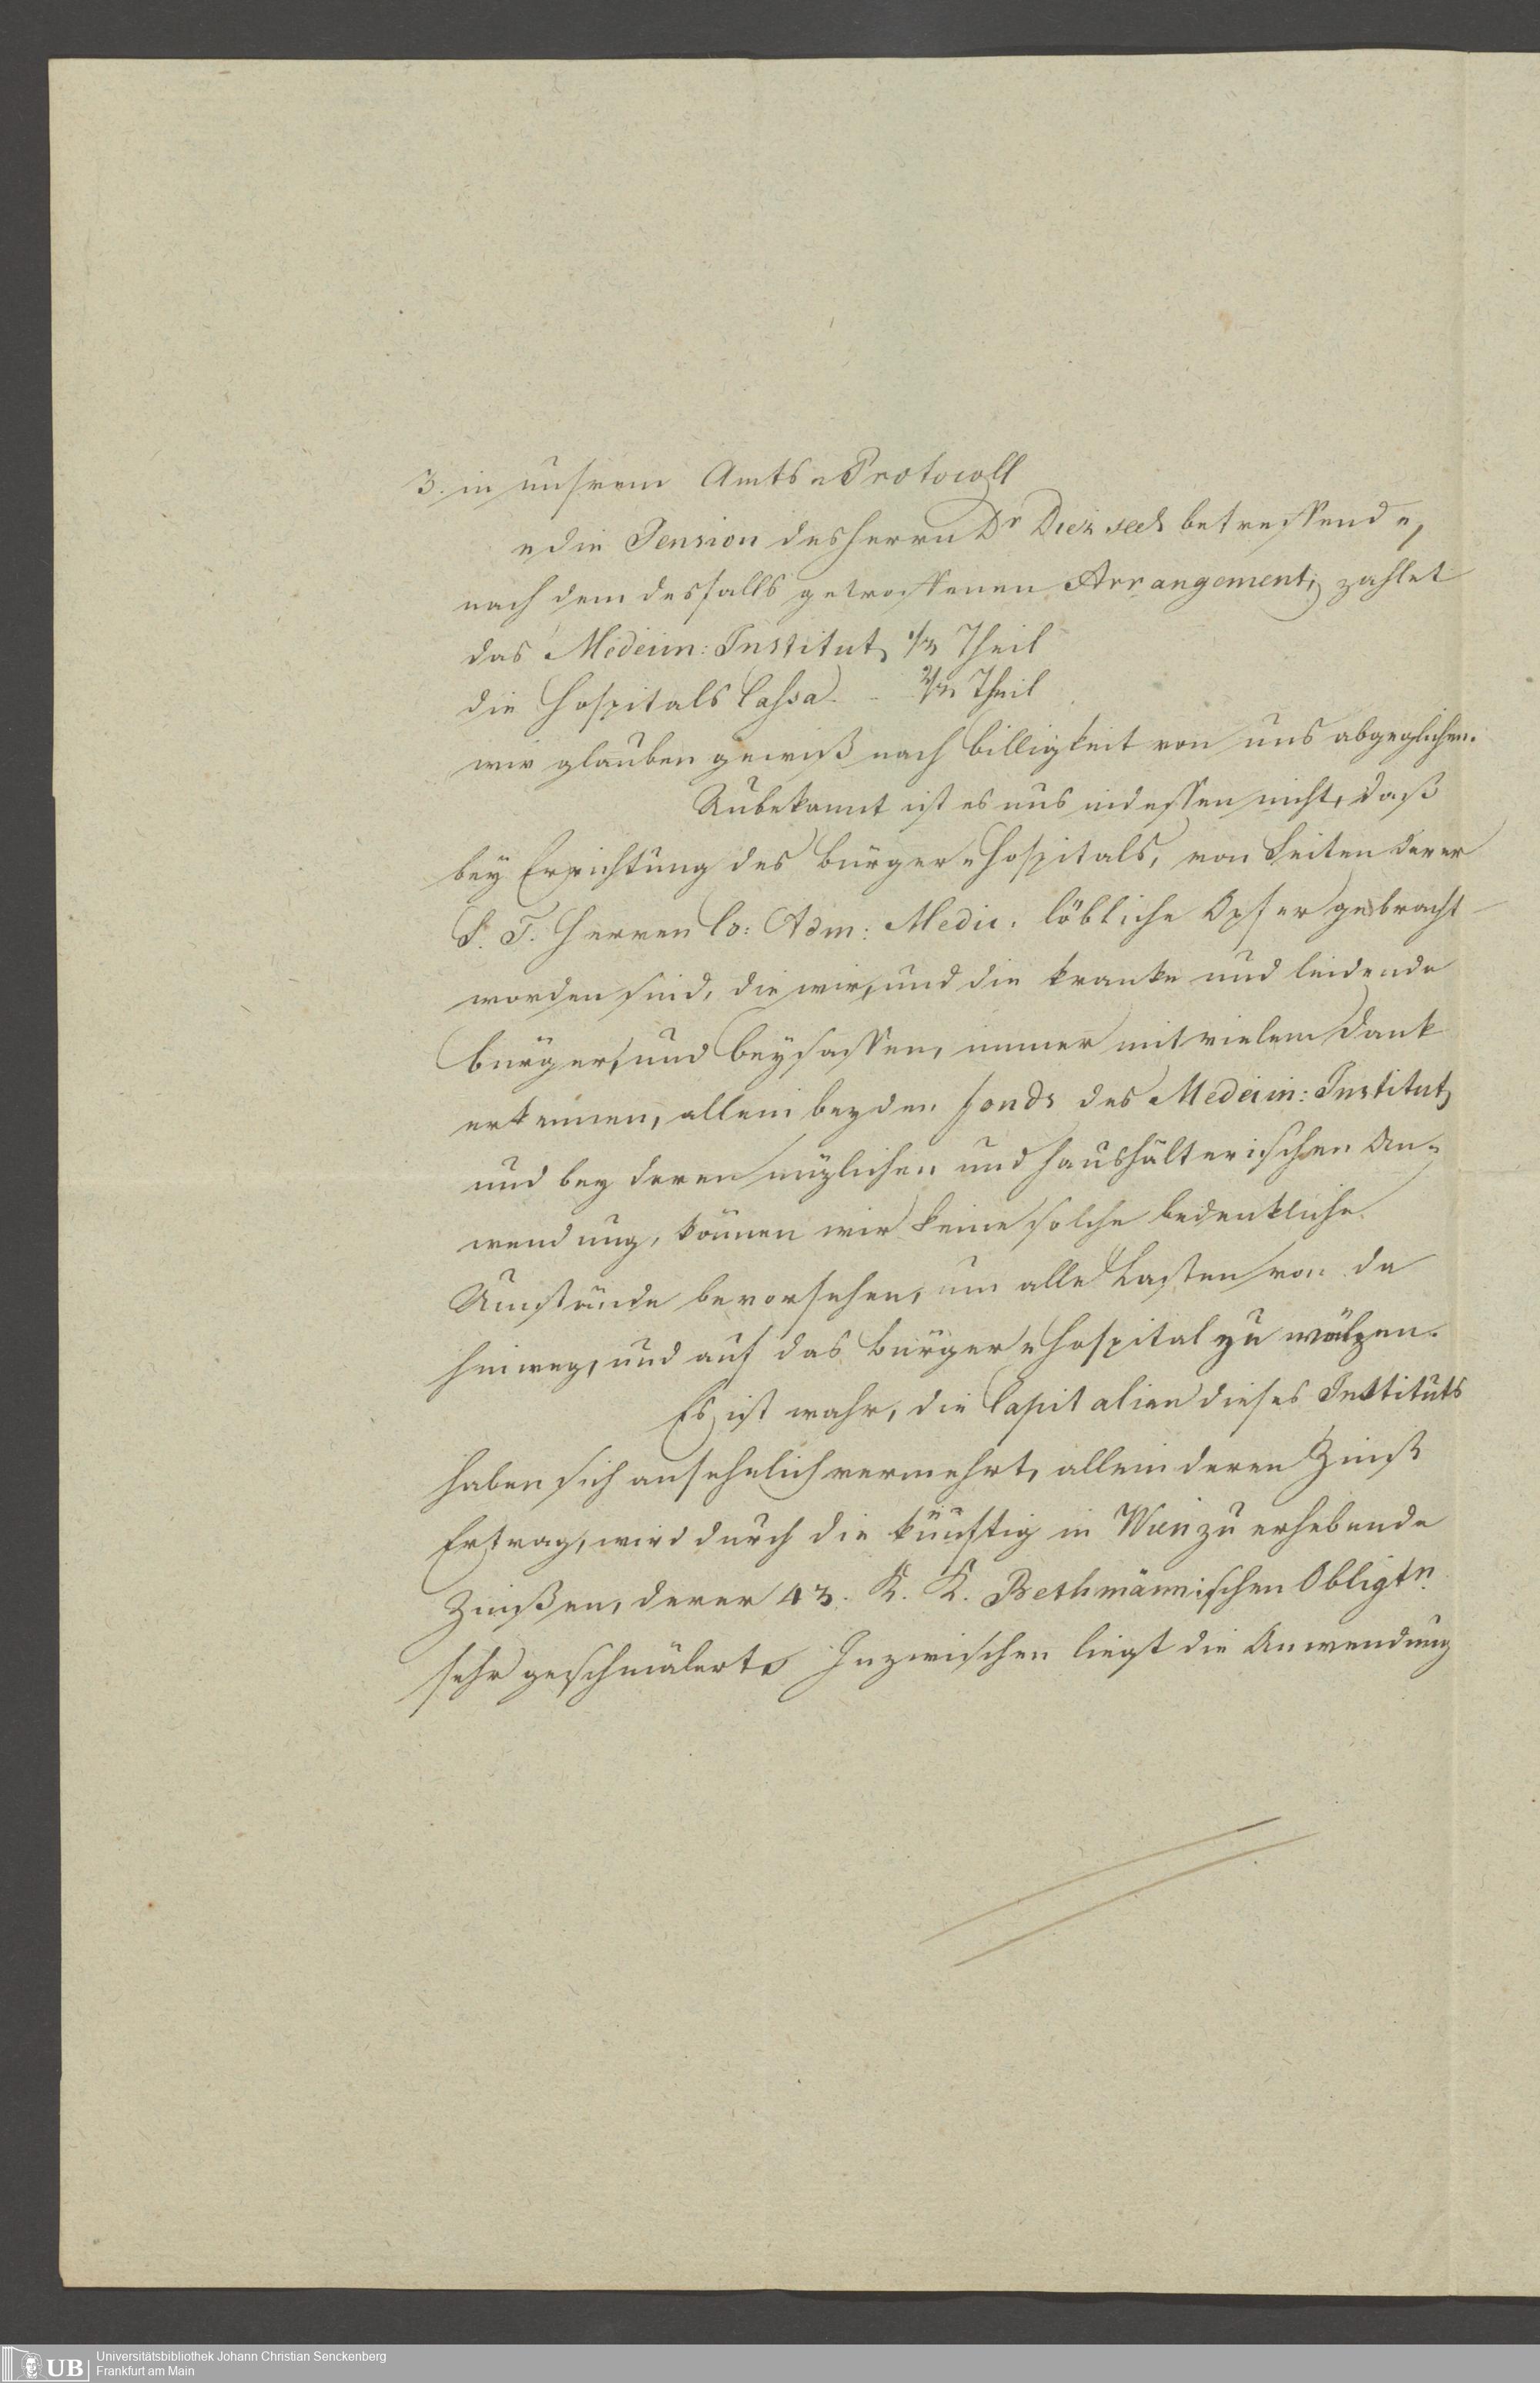 3. in unserem Amts-Protocoll
"die Pension des Herrn Dr Diez sel. betreffend",
nach dem desfalls getroffenen Arrangement, zahlet
das Medicin: Institut, 1/3 Theil
die Hospitals Cassa. - 2/3 Theil
wir glauben gewiß nach Billigkeit von uns abgeglichen.
Unbekannt ist es uns indessen nicht, daß
bey Errichtung des Bürger-Hospitals, von Seiten derer
S. T. Herren Co: Adm: Medic. löbliche Opfer gebracht
worden sind, die wir, und die kranke und leidende
Bürger, und Beysassen, immer mit vielem Dank
erkennen, allein bey den Fonds des Medicin: Instituts
und bey deren nüzlichen und haushälterischen An-
wendung, können wir keine solche bedenkliche
Umstände bevorsehen, um alle Lasten von da
hinweg, und auf das Bürger-Hospital zu wälzen.
Es ist wahr, die Capitalien dieses Instituts
haben sich ansehnlich vermehrt, allein deren Zinß
Ertrag, wird durch die künftig in Wien zu erhebende
Zinßen, derer 43. K. K. Bethmännischen Obligtn.
sehr geschmälert. Inzwischen liegt die Anwendung
UB
Universitätsbibliothek Johann Christian Senckenberg
Frankfurt am Main